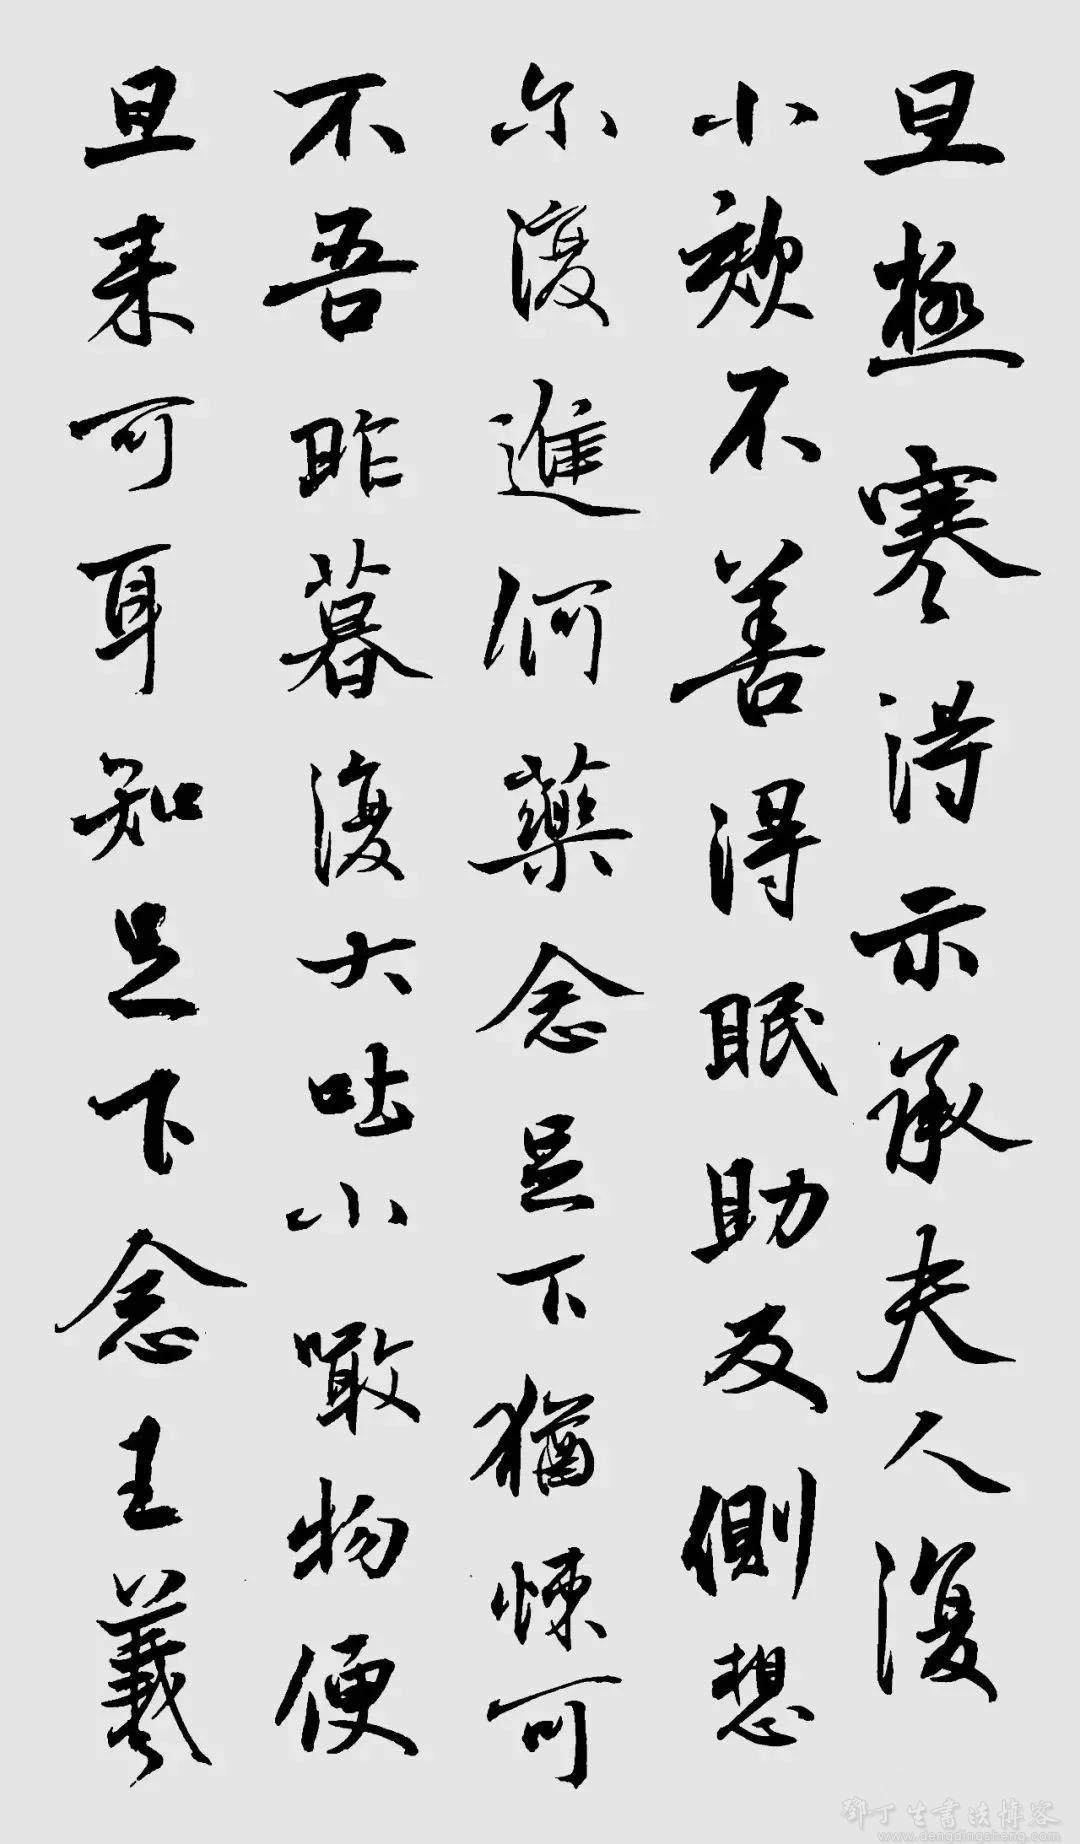 旦極寒得示承夫人復
小欬不善得眠助反側想
尓復進何藥念足下猶悚可
不吾昨暮復大吐小噉物便
旦来可耳知足下念王羲
鄧丁生書法博客
www.dengdingsheng.com